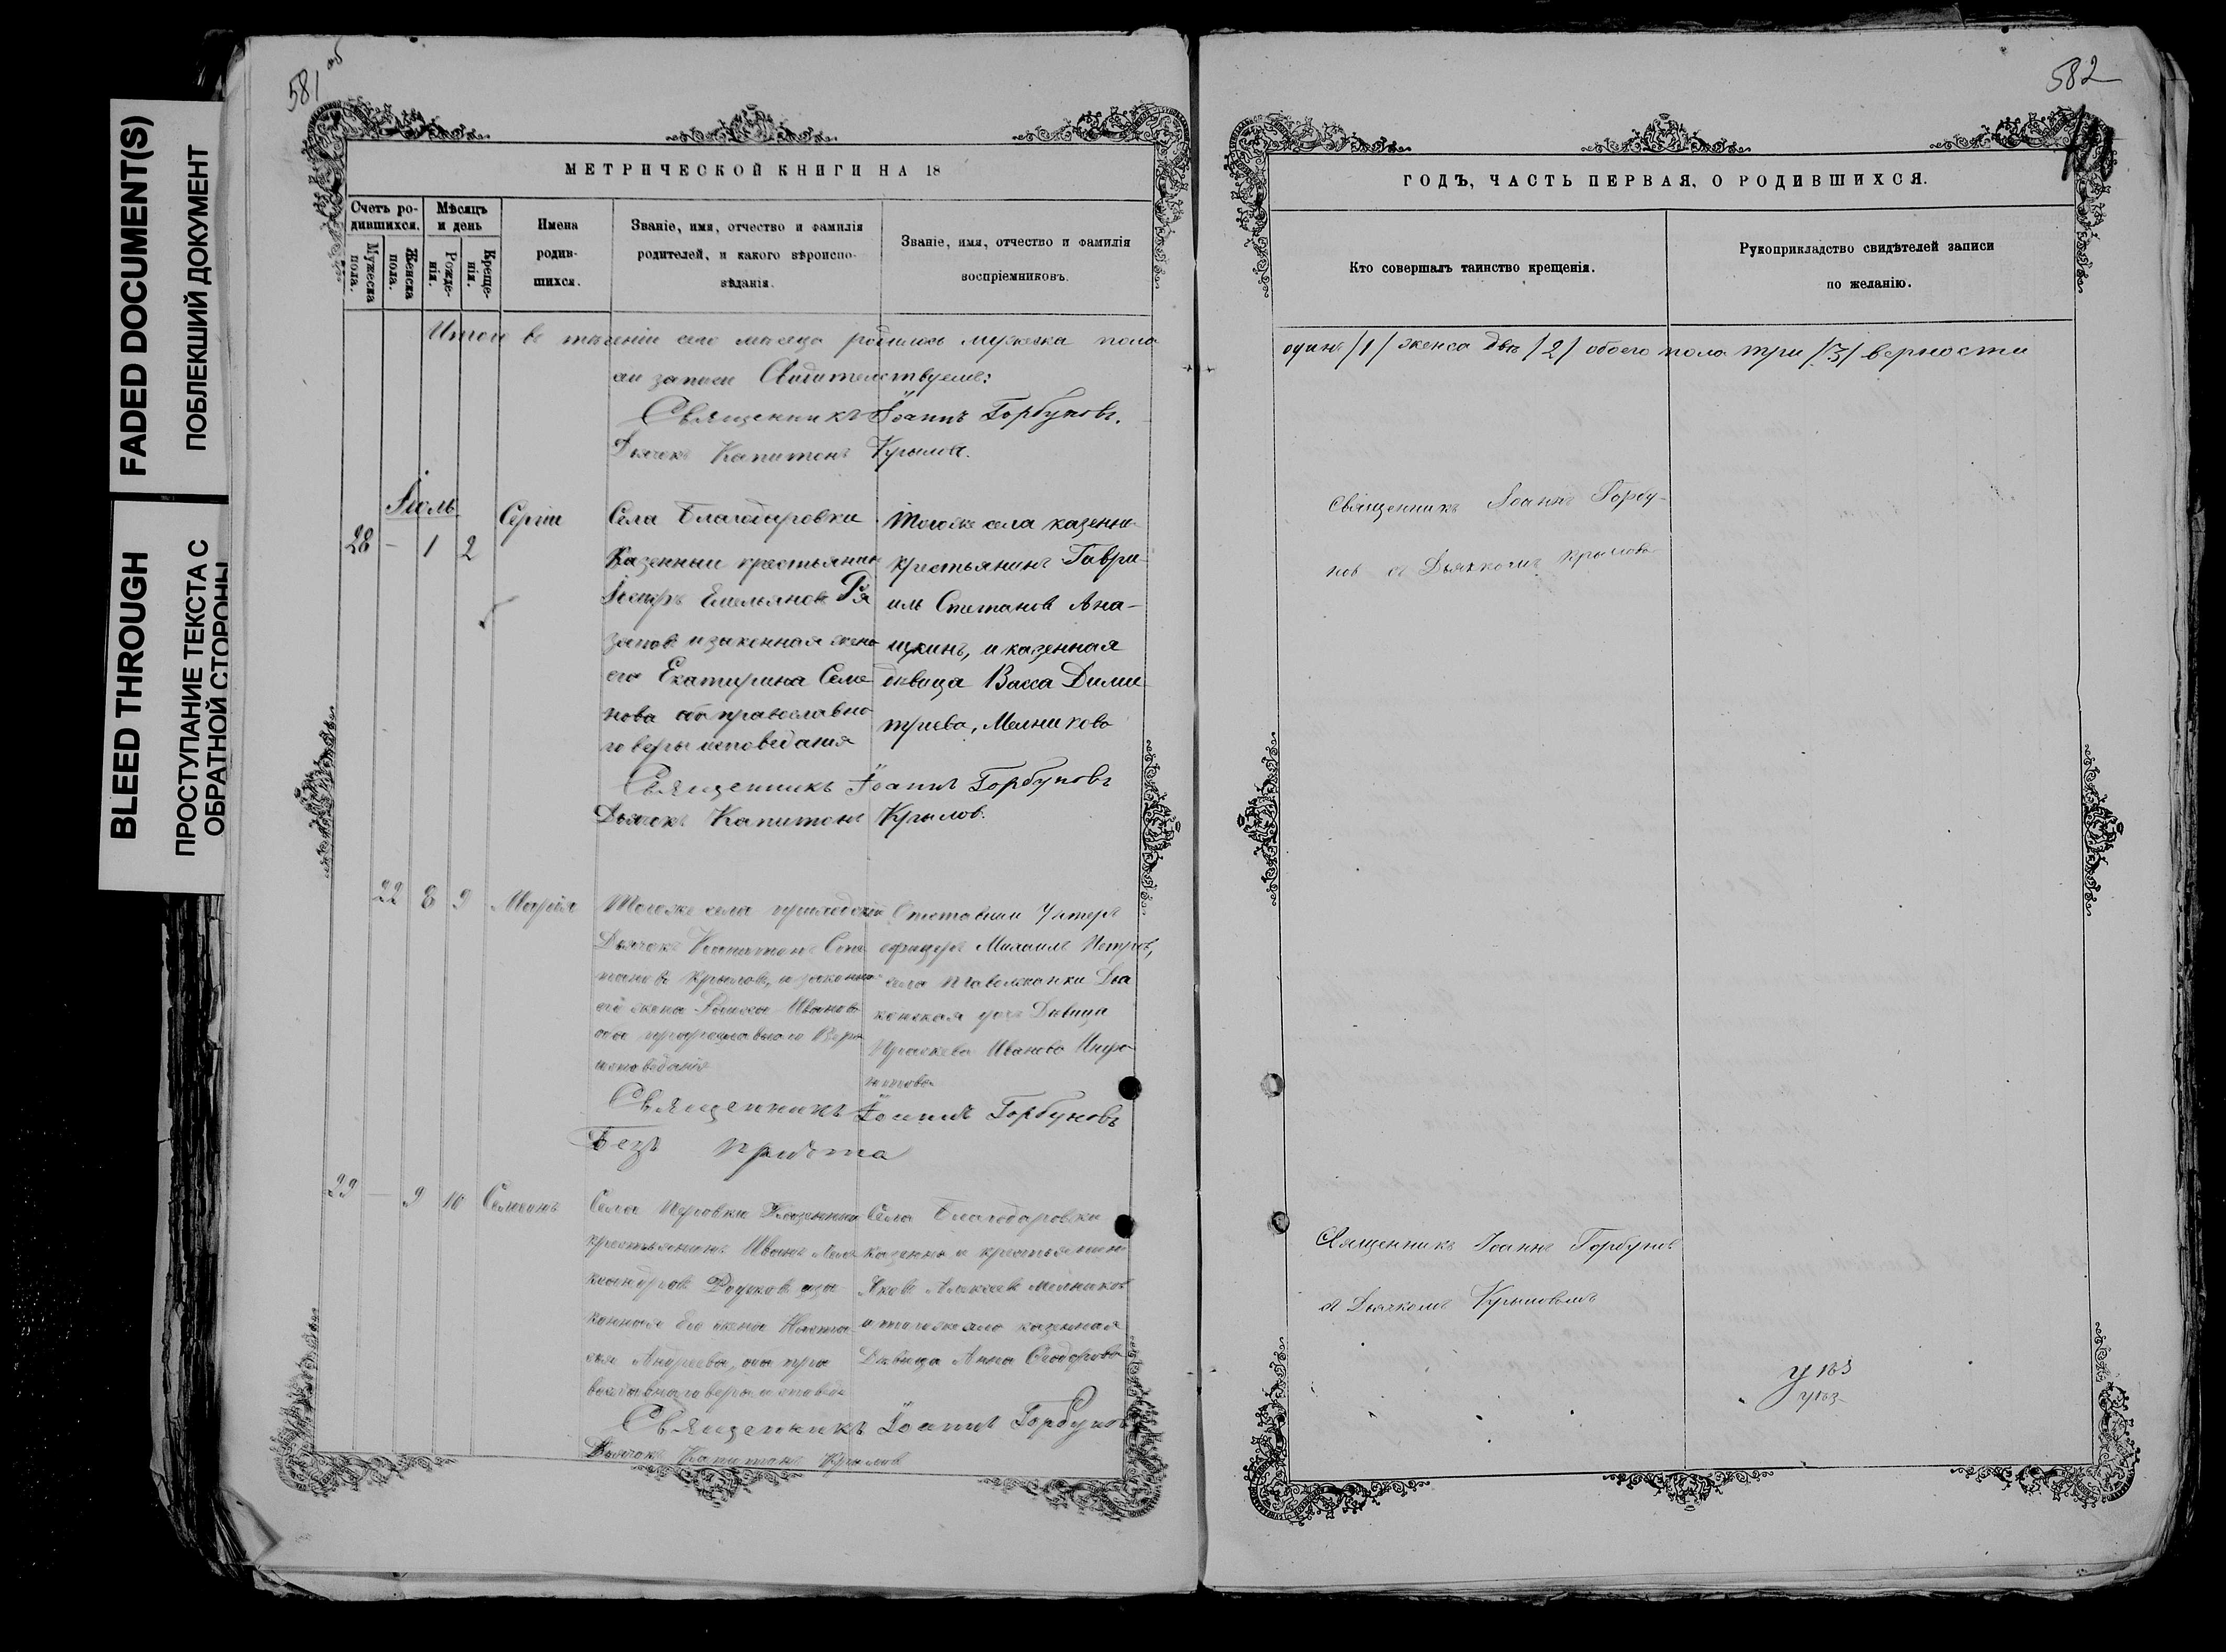 581 об
582
FADED DOCUMENT(S)
ПОБЛЕКШИЙ ДОКУМЕНТ
BLEED THROUGH
ПРОСТУПАНИЕ ТЕКСТА С
ОБРАТНОЙ СТОРОНЫ
МЕТРИЧЕСКОЙ КНИГИ НА 18
Счетъ ро-
дившихся.
Мужеска
пола.
Женска
пола.
Мѣсяцъ
и день
Рожде-
нія.
Креще-
нія.
Имена
родив-
шихся.
Званіе, имя, отчество и фамилія
родителей, и какого вѣроиспо-
вѣданія.
Званіе, имя, отчество и фамилія
воспріемниковъ.
Итого въ теченіи сего месеца родилось мужеска пола
записи Свидетелствуемъ:
Священникъ Іоаннъ Горбуновъ.
Дьячекъ Капитонъ Крылов.
Іюль
28 - 1 2
Сергіи
Села Благодаровки
Казенныи крестьянин
Петръ Емельянов Ря
занов и законная жена
его Екатирина Семе
нова оба православна
го веры исповедания
Тогоже села казенны
крестьянинъ Гаври-
илъ Степанов Ана-
шкинъ, и казенная
девица Васса Дими
триева, Мелникова
Священникъ Іоаннъ Горбуновъ
Дьячекъ Капитонъ Крылов.
22 8 9
Марія
Тогоже села приходскій
Дьячекъ Капитонъ Сте
панов Крылов, и законна
его жена Иванов
оба православнаго Веры
исповеданія
Отставныи Унтеръ
офицеръ Михаилъ Петров,
села Таволжанки Дья
конская дочь Девица
Праскева Иванова
Священникъ Іоаннъ Горбуновъ
Безъ причта
29 - 9 10
Симеонъ
Села Перовки Казенныи
крестьянинъ Иванъ Алек
сандров за
конная его жена Наста
сья Андреева, оба пра
вославнаго веры исповед
Села Благодаровки
казенны и крестьянин
Яковъ Алексеев Мелников
и тогоже села казенная
Девица Анна Феодорова
Священникъ Іоаннъ Горбуновъ
Дьячокъ Капитонъ Крылов
ГОДЪ, ЧАСТЬ ПЕРВАЯ, О РОДИВШИХСЯ.
Кто совершалъ таинство крещенія.
Рукоприкладство свидѣтелей записи
по желанію.
одинъ /1/ женска две /2/ обоего пола три /3/ верности
Священникъ Іоаннъ Горбу-
нов съ Дьячкомъ Крылов
Священникъ Іоаннъ Горбунов
съ Дьячкомъ Крыловымъ